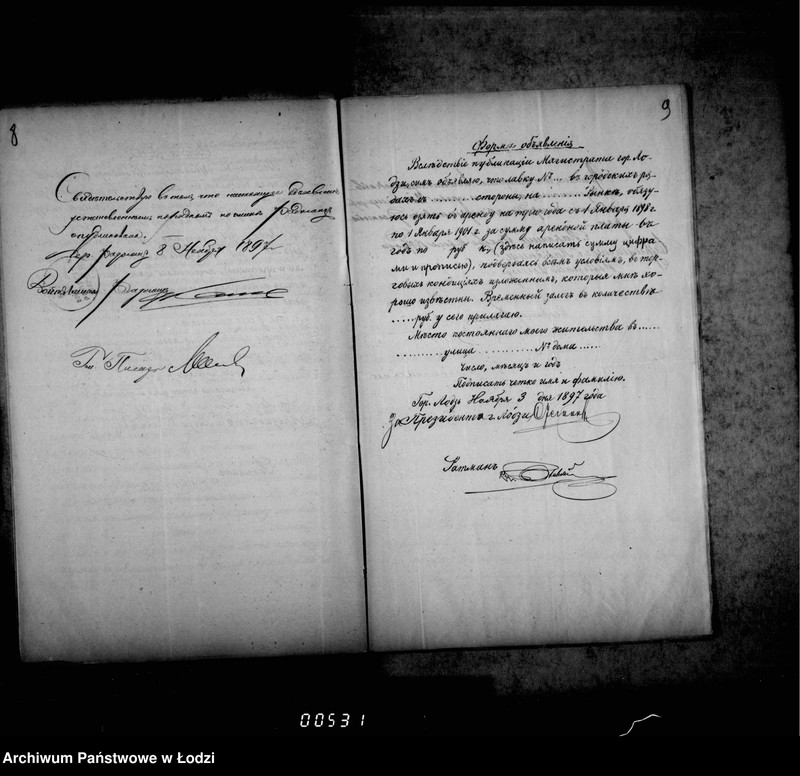 8
Свидетельствую въ томъ, что настоящее объявленіе
установленнымъ порядкомъ
опубликовано.
8 Ноября 1897
9
Форма объявленія
Вслѣдствіе публикаціи Магистрата гор. Ло-
дзи, симъ объявляю, что лавку № ... въ городскихъ ря-
дахъ въ ........ стороны, на ......... Рынкѣ, обязу-
юсь взять въ аренду на три года съ 1 Января 1898 г.
по 1 Января 1901 г. за сумму арендной платы въ
годъ по руб к. (здѣсь написать сумму цифра-
ми и прописью), подвергаясь всѣмъ условіямъ, въ тор-
говыхъ кондиціяхъ изложеннымъ, которые мнѣ хо-
рошо извѣстны. Временный залогъ въ количествѣ
..... руб. у сего прилагаю.
Мѣсто постояннаго моего жительства въ ......
........... улица .......... № дома .....
Число, мѣсяцъ и годъ
Подписать четко имя и фамилію.
Гор. Лодзь Ноября 3 дня 1897 года
За Президента г. Лодзи,
00531
Archiwum Państwowe w Łodzi